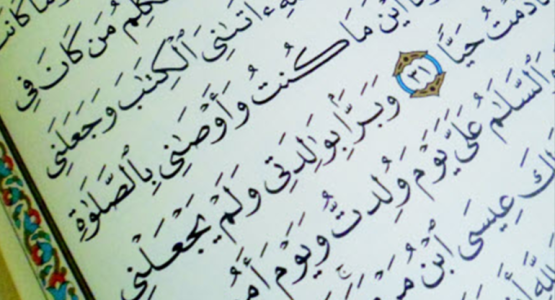 نُكَلِّمُ مَن كَانَ فِي
ءَاتَىٰنِيَ ٱلْكِتَٰبَ وَجَعَلَنِي
أَيْنَ مَا كُنتُ وَأَوْصَٰنِي بِٱلصَّلَوٰةِ
دُمْتُ حَيًّا ٣١ وَبَرًّۢا بِوَٰلِدَتِي وَلَمْ يَجْعَلْنِي
وَٱلسَّلَٰمُ عَلَيَّ يَوْمَ وُلِدتُّ وَيَوْمَ
عِيسَى ٱبْنُ